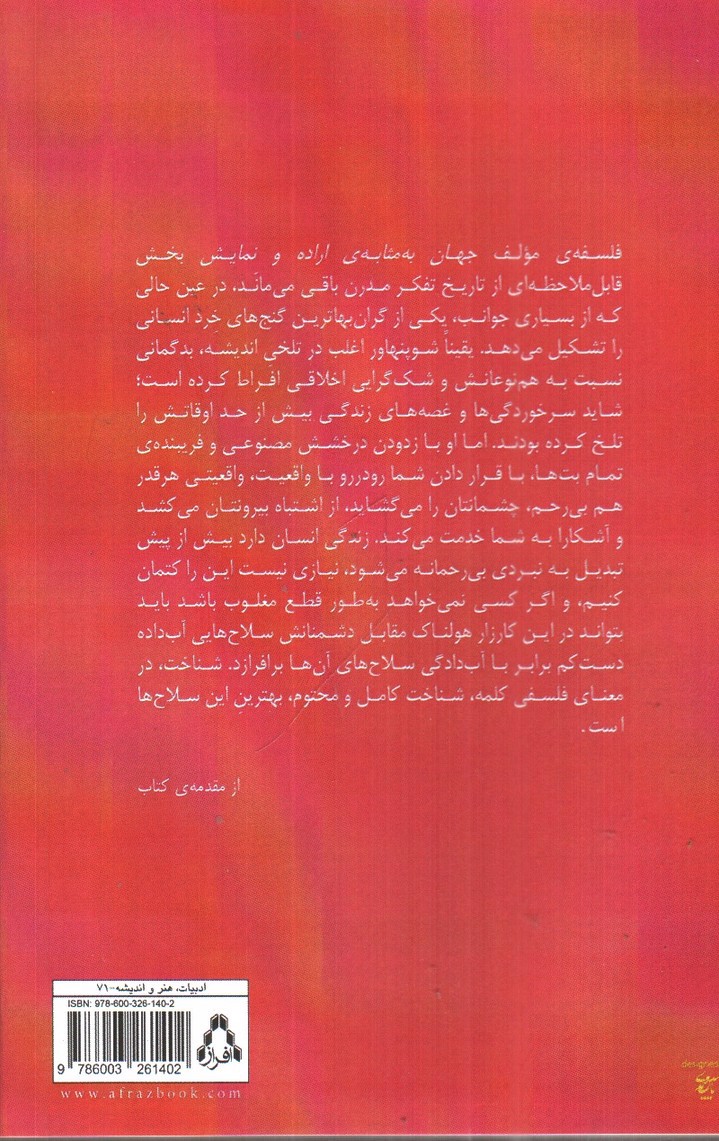 فلسفه‌ی مؤلف جهان به‌مثابه‌ی اراده و نمایش بخش
قابل‌ملاحظه‌ای از تاریخ تفکر مدرن باقی می‌ماند، در عین حالی
که از بسیاری جوانب، یکی از گران‌بهاترین گنج‌های خِرد انسانی
را تشکیل می‌دهد. یقیناً شوپنهاور اغلب در تلخیِ اندیشه، بدگمانی
نسبت به هم‌نوعانش و شک‌گرایی اخلاقی افراط کرده است؛
شاید سرخوردگی‌ها و غصه‌های زندگی بیش از حد اوقاتش را
تلخ کرده بودند. اما او با زدودن درخشش مصنوعی و فریبنده‌ی
تمام بت‌ها، با قرار دادن شما رودررو با واقعیت، واقعیتی هرقدر
هم بی‌رحم، چشمانتان را می‌گشاید، از اشتباه بیرونتان می‌کشد
و آشکارا به شما خدمت می‌کند. زندگی انسان دارد بیش از پیش
تبدیل به نبردی بی‌رحمانه می‌شود، نیازی نیست این را کتمان
کنیم، و اگر کسی نمی‌خواهد به‌طور قطع مغلوب باشد باید
بتواند در این کارزار هولناک مقابل دشمنانش سلاح‌هایی آب‌داده
دست‌کم برابر با آب‌دادگی سلاح‌های آن‌ها برافرازد. شناخت، در
معنای فلسفی کلمه، شناخت کامل و محتوم، بهترینِ این سلاح‌ها
است.
از مقدمه‌ی کتاب
ادبیات، هنر و اندیشه-۷۱
ISBN: 978-600-326-140-2
افراز
9 786003 261402
www.afrazbook.com